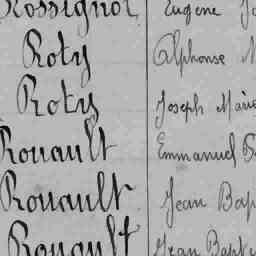 Rossignol Eugène
Roty Alphonse
Roty Joseph Marie
Rouault Emmanuel
Rouault Jean Bap
Rouault Jean Bapt